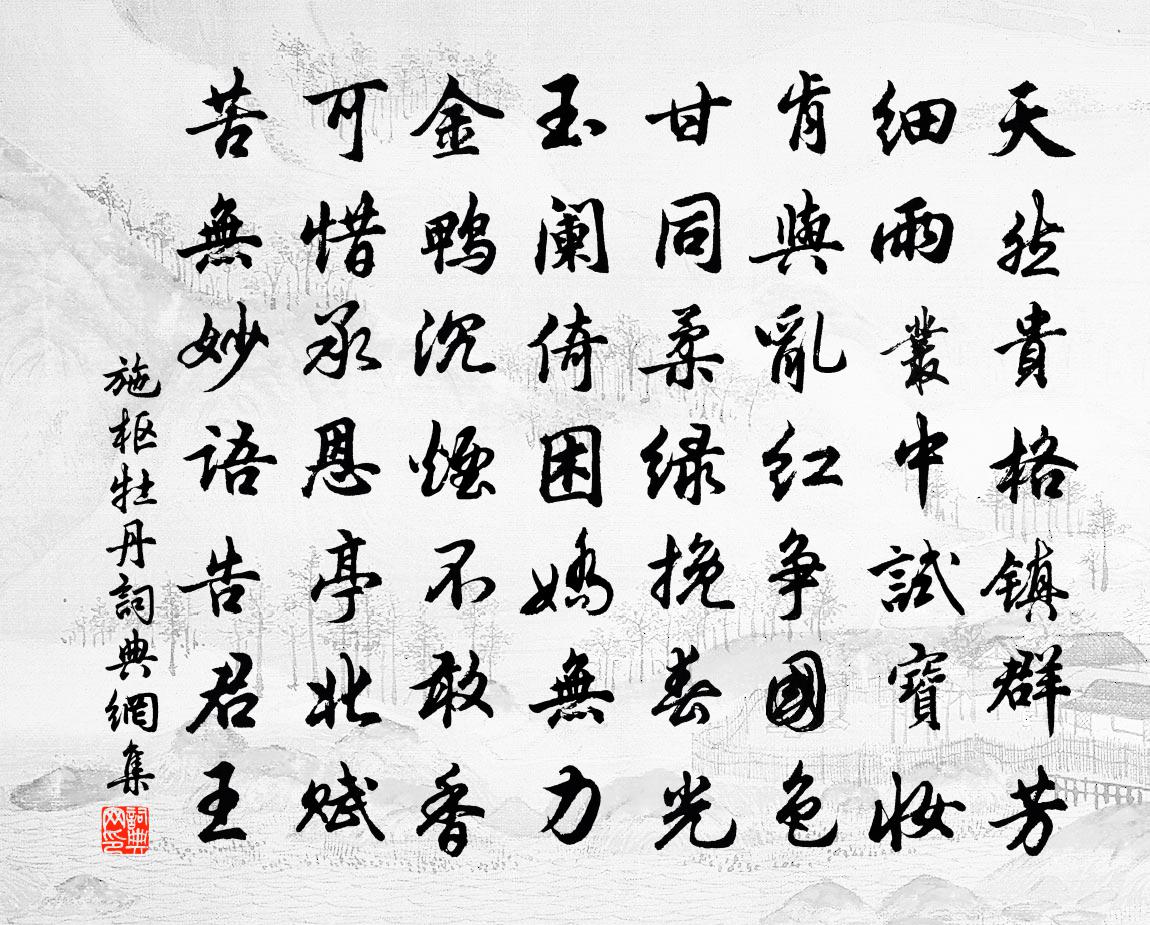 天然貴格镇群芳
细雨叢中試寶妝
肯與亂红争國色
甘同柔绿挽春光
玉阑倚困嬌無力
金鸭沉煙不敢香
可惜承恩亭北赋
苦無妙语告君王
施枢牡丹詞典網集
詞典網印